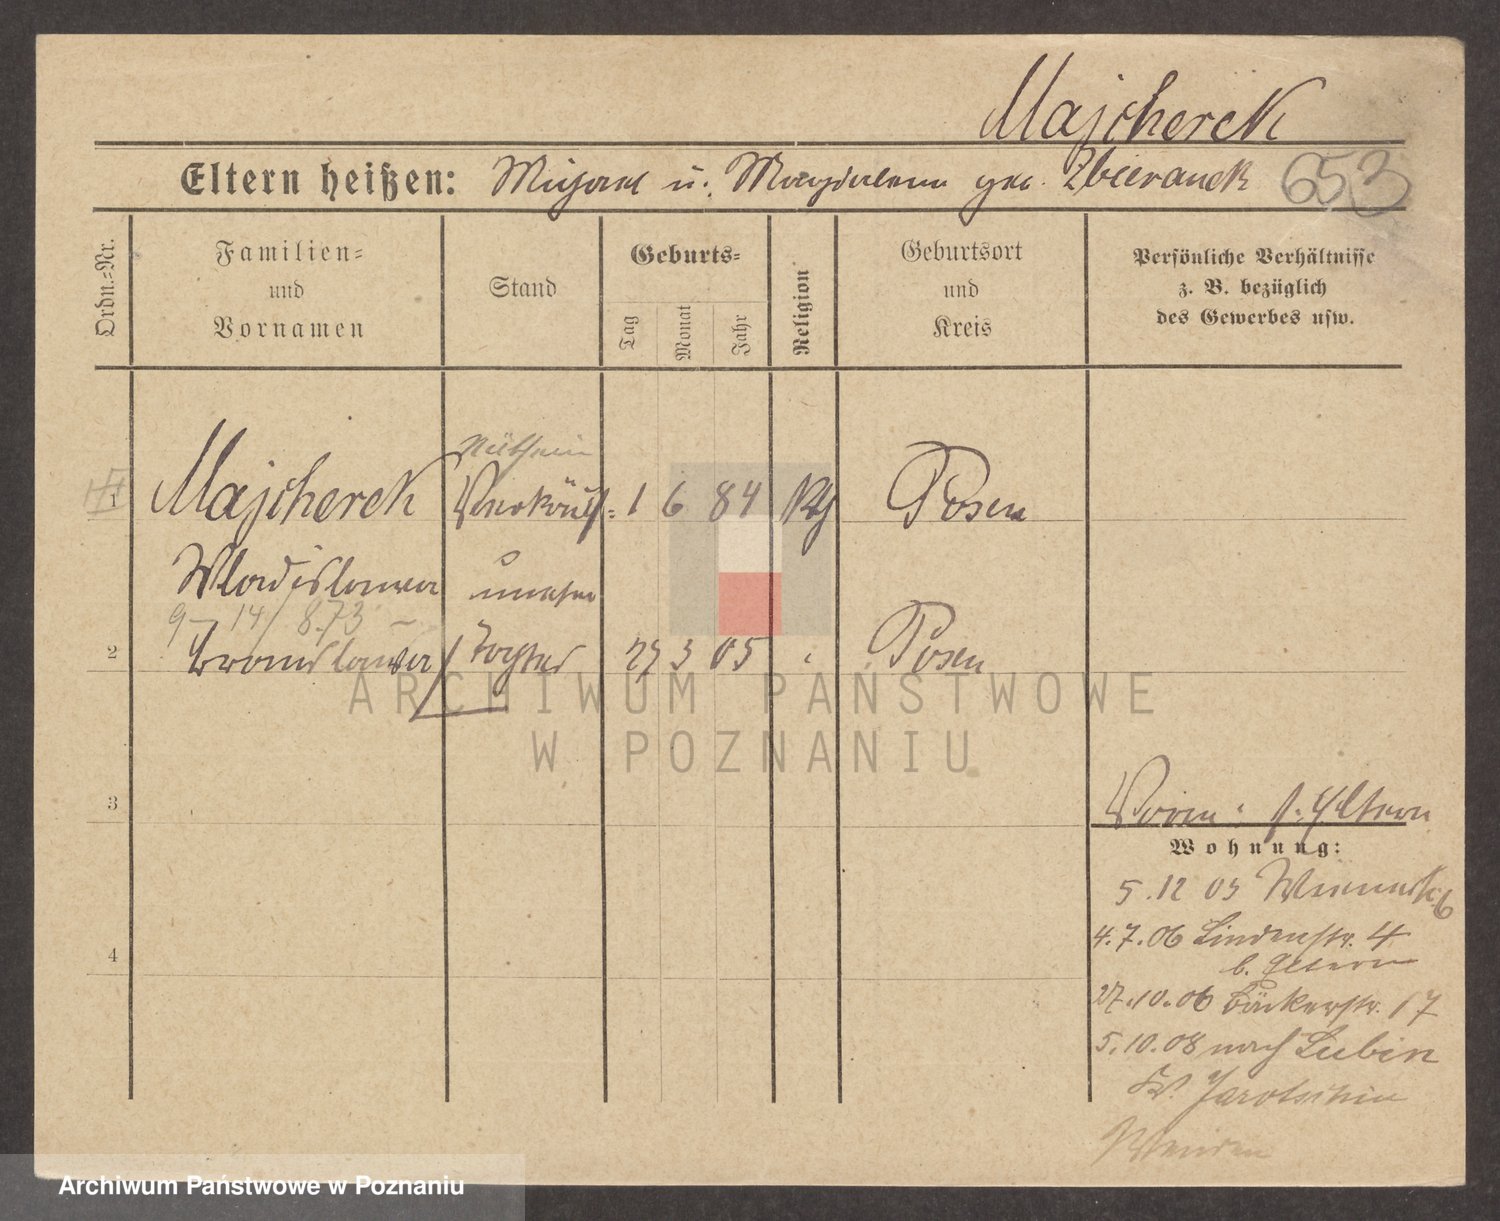 Majcherek
Eltern heißen: Michael u. Magdalena geb. Zbieranek 653
Ordn.-Nr.
Familien-
und
Vornamen
Stand
Geburts-
Tag
Monat
Jahr
Religion
Geburtsort
und
Kreis
Persönliche Verhältnisse
z. B. bezüglich
des Gewerbes usw.
Näherin
1 Majcherek Verkäuf= 1 6 84 kth Posen
Wladislawa
9 - 14/ 873 -
2 Bronislawa Tochter 27 3 05 Posen
ARCHIWUM PAŃSTWOWE
W POZNANIU
3
Vorm: s. Eltern
Wohnung:
5. 12 05
4.7.06 Lindenstr. 4
b. Eltern
27.10.06 Bäckerstr. 17
5.10.08 nach Lubin
Kr. Jarotschin
4
Archiwum Państwowe w Poznaniu